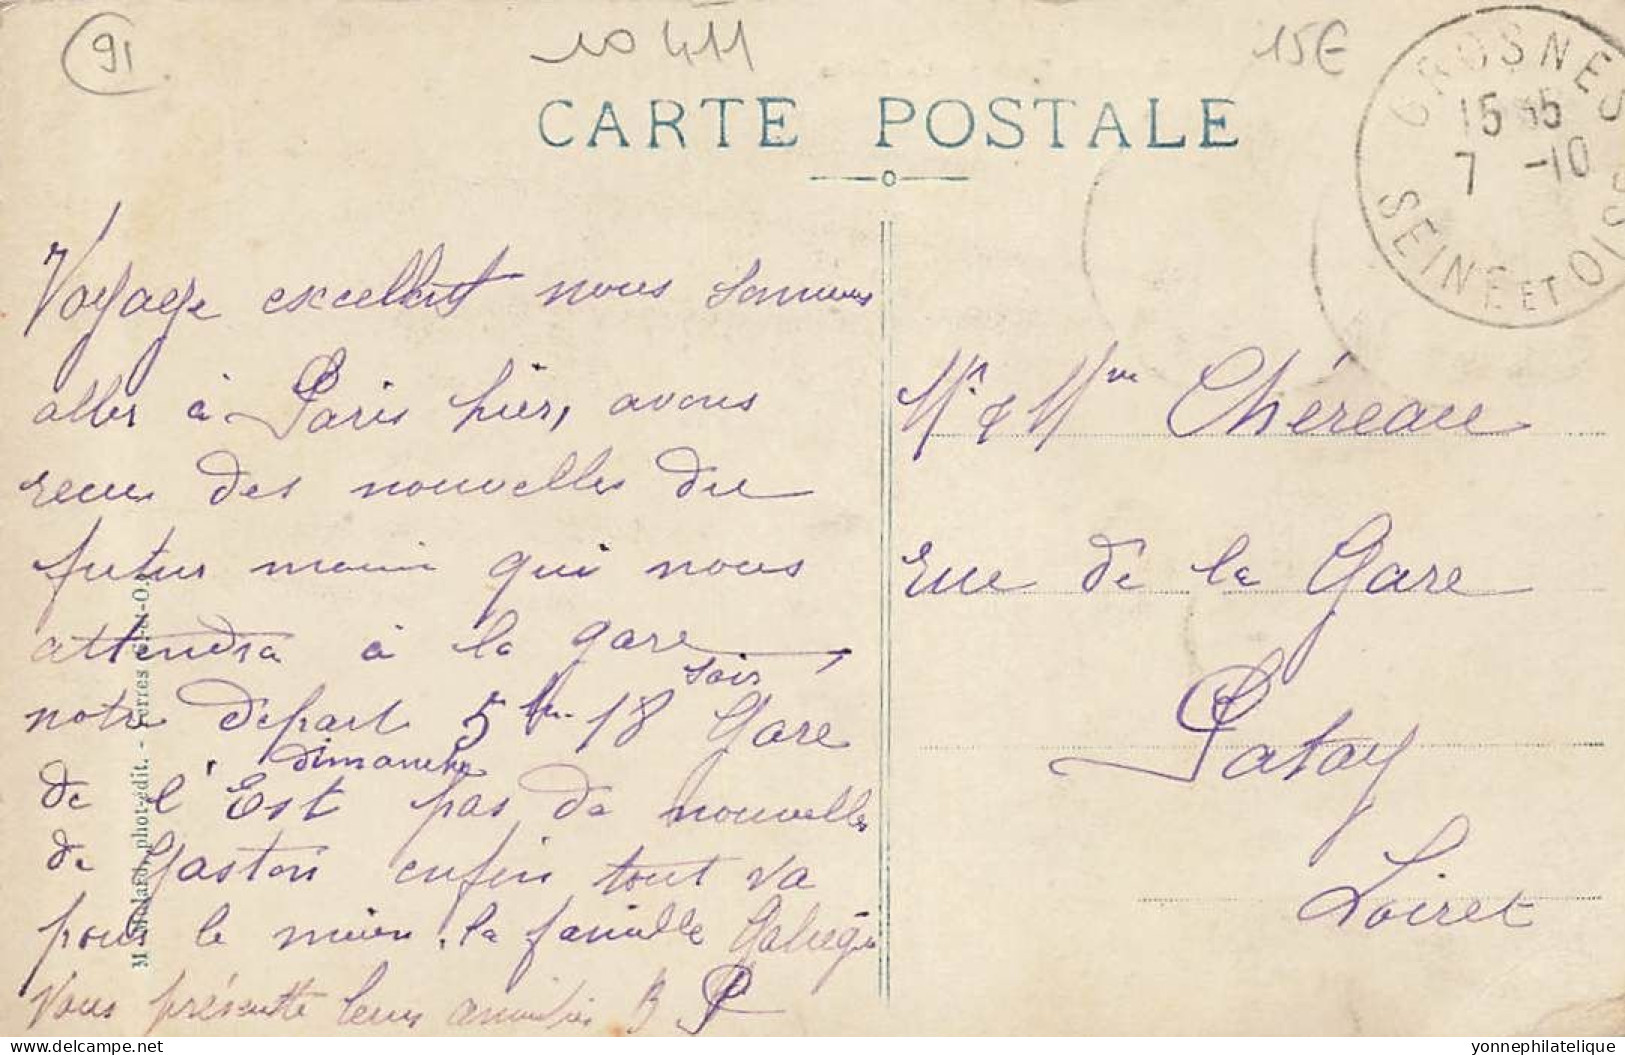 91
10411
15€
CARTE POSTALE
CROSNES
15 35
7 -10
SEINE ET OISE
Voyage excellent nous sommes
aller à Paris hier, avons
recus des nouvelles du
futur marin qui nous
attendra à la gare
soir,
notre départ 5 h. 18 Gare
dimanche
de l'Est pas de nouvelles
de Gaston enfin tout va
pour le mieu. la famille
Vous présente leurs amitiés B P
Mr & Mme Chéreau
rue de la Gare
Patay
Loiret
M. Mulard, phot-édit. - Yerres
Delcampe.net
yonnephilatelique